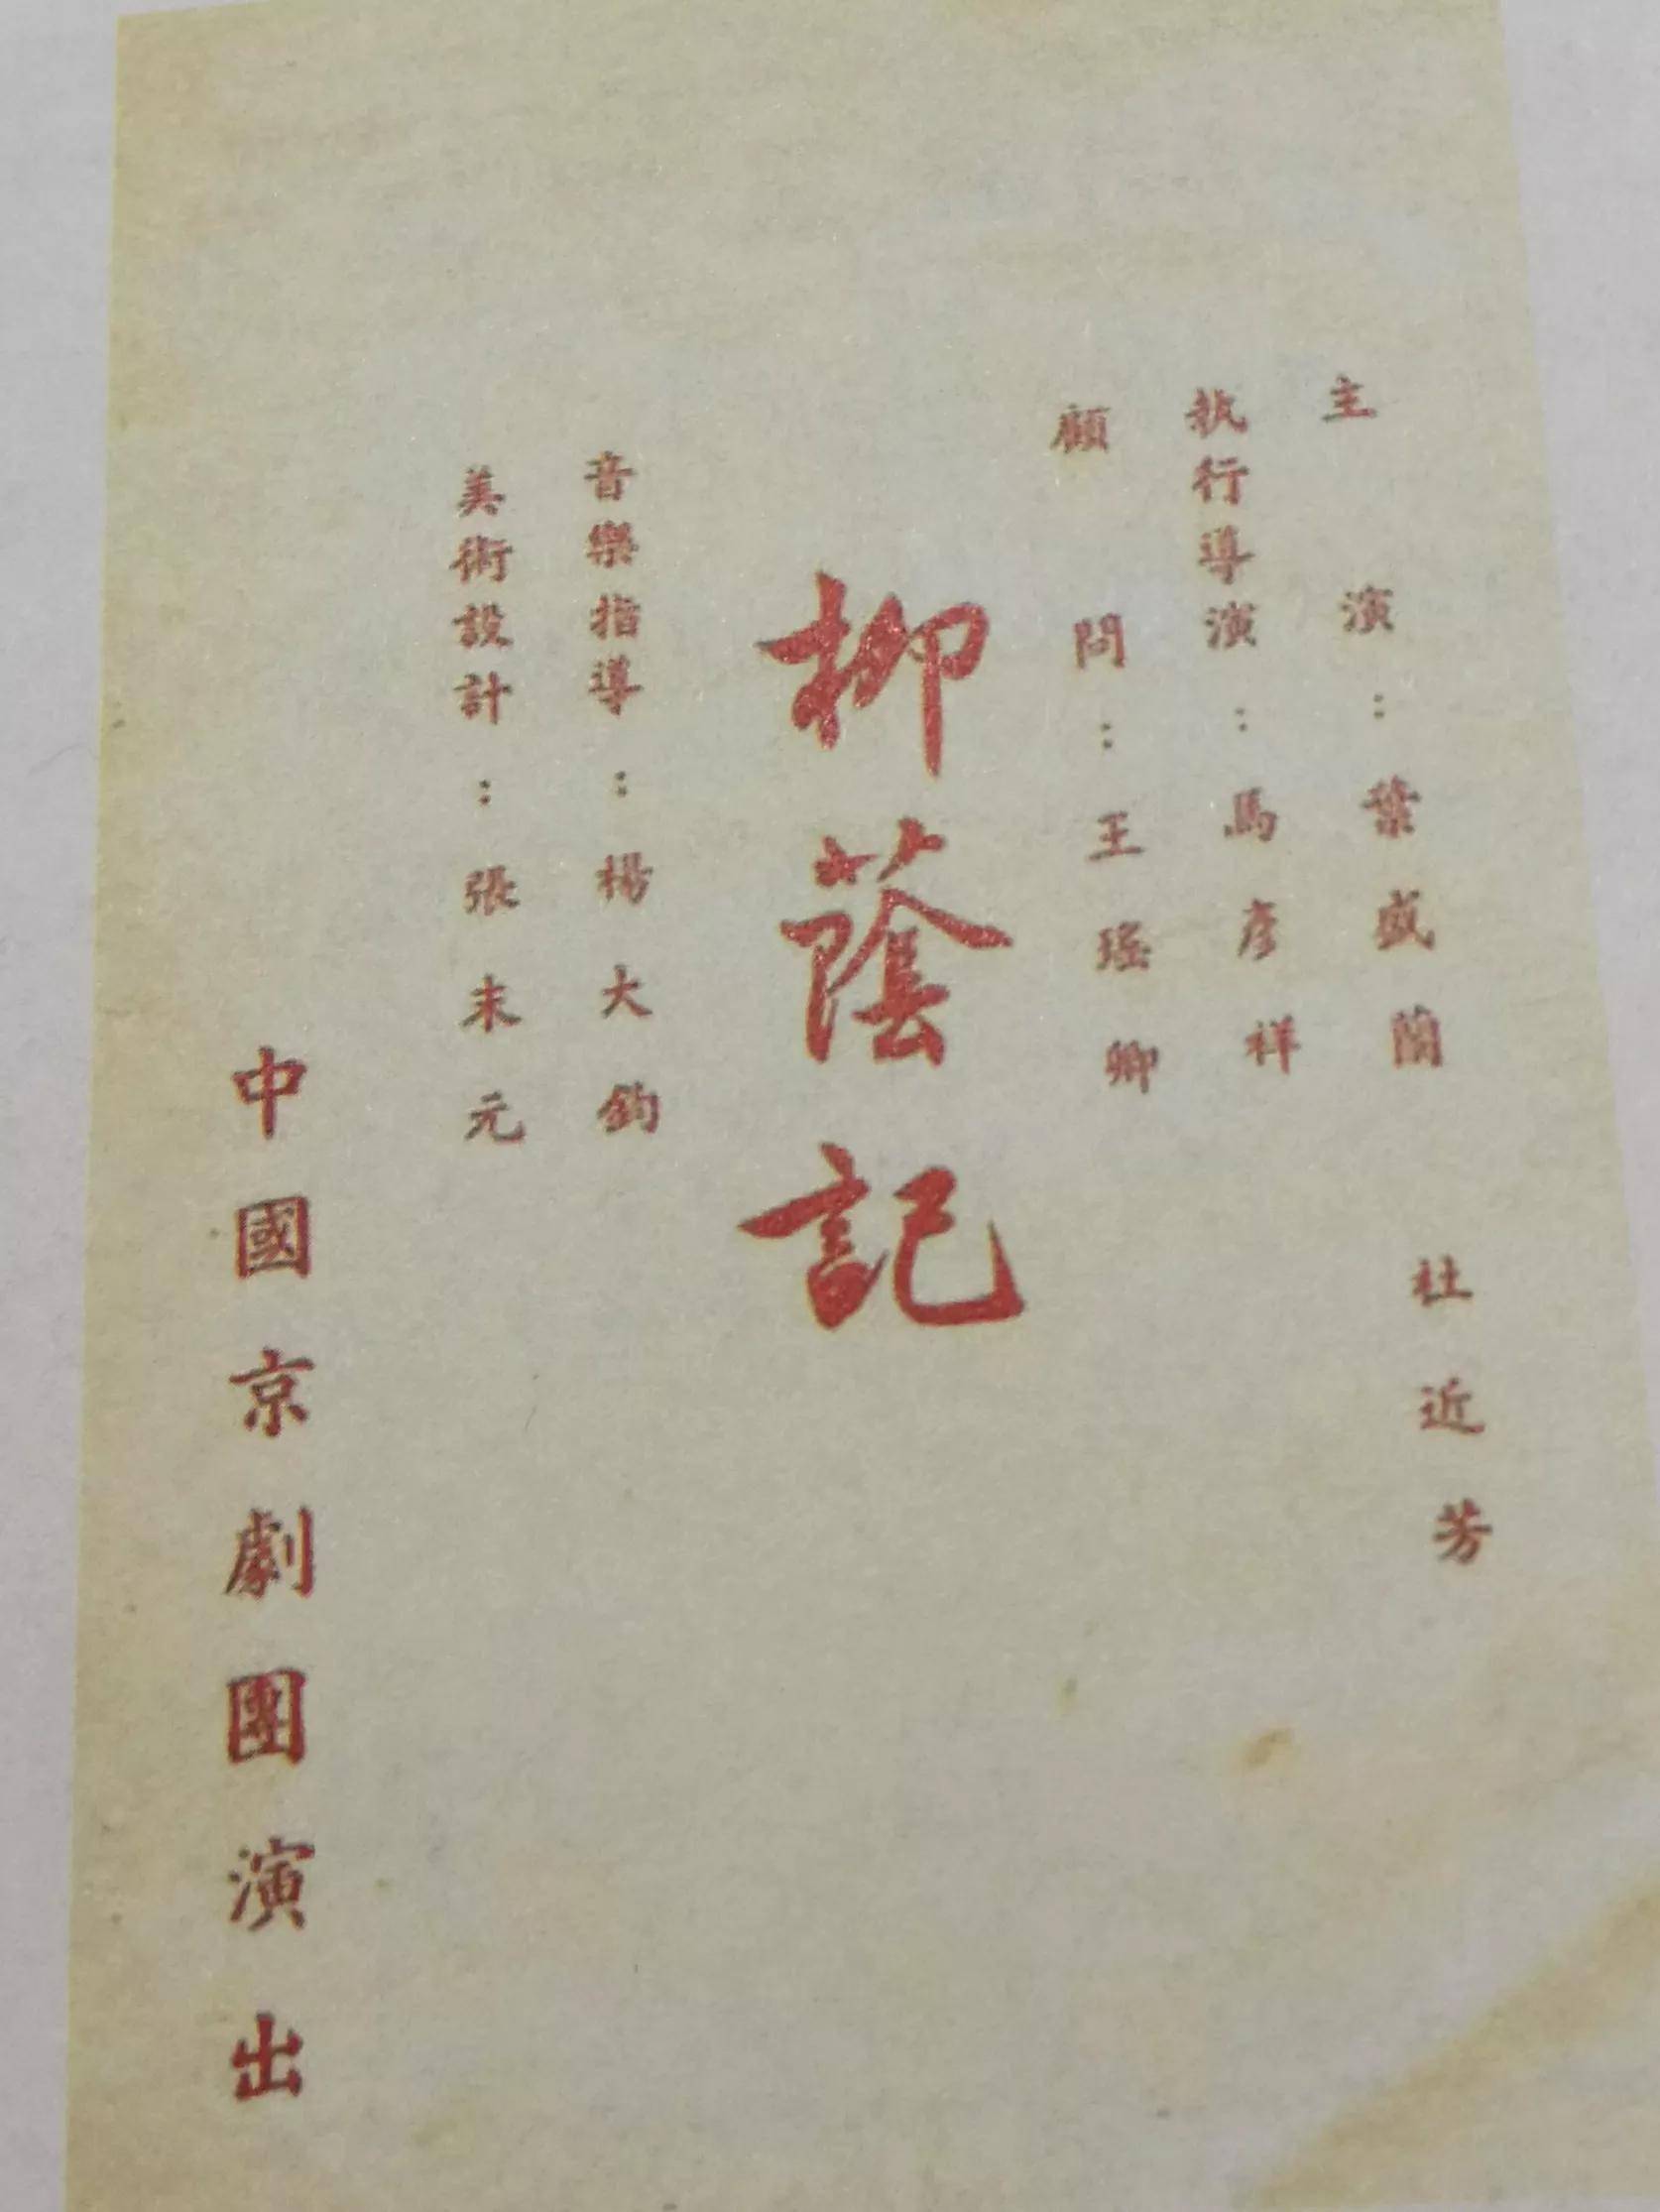 主演：葉盛蘭 杜近芳
執行導演：馬彥祥
顧問：王瑤卿
柳蔭記
音樂指導：楊大鈞
美術設計：張末元
中國京劇團演出